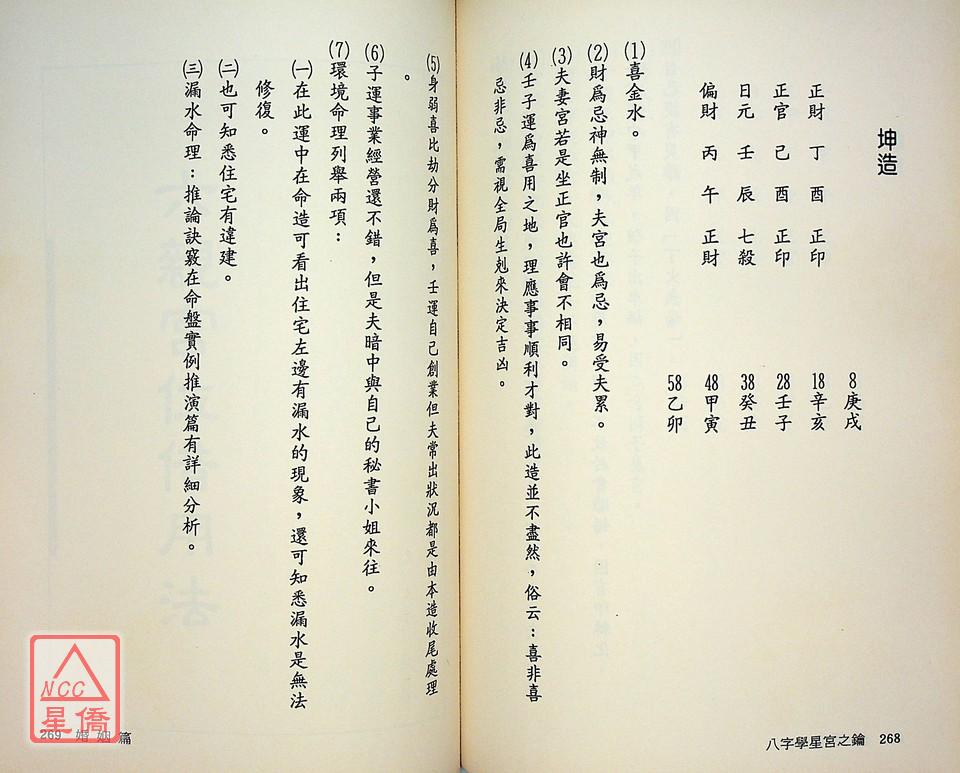 坤造
正財 丁 酉 正印
正官 己 酉 正印
日元 壬 辰 七殺
偏財 丙 午 正財
8 庚戌
18 辛亥
28 壬子
38 癸丑
48 甲寅
58 乙卯
(1)喜金水。
(2)財為忌神無制，夫宮也為忌，易受夫累。
(3)夫妻宮若是坐正官也許會不相同。
(4)壬子運為喜用之地，理應事事順利才對，此造並不盡然，俗云：喜非喜
忌非忌，需視全局生剋來決定吉凶。
八字學星宮之鑰 268
(5)身弱喜比劫分財為喜，壬運自己創業但夫常出狀況都是由本造收尾處理
。
(6)子運事業經營還不錯，但是夫暗中與自己的秘書小姐來往。
(7)環境命理列舉兩項：
㈠在此運中在命造可看出住宅左邊有漏水的現象，還可知悉漏水是無法
修復。
㈡也可知悉住宅有違建。
㈢漏水命理：推論訣竅在命盤實例推演篇有詳細分析。
269 婚姻篇
NCC
星僑